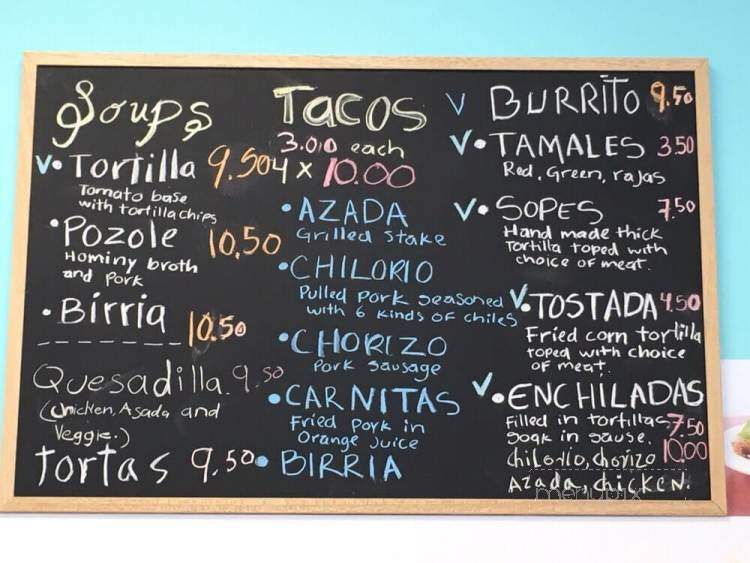 Soups
V• Tortilla 9.50
Tomato base
with tortilla chips
• Pozole 10.50
Hominy broth
and Pork
• Birria 10.50
Quesadilla. 9.50
(Chicken, Asada and
Veggie.)
Tortas 9.50
Tacos
3.00 each
4 x 10.00
• AZADA
Grilled stake
• CHILORIO
Pulled pork seasoned
with 6 kinds of chiles
• CHORIZO
Pork Sausage
• CARNITAS
Fried pork in
Orange Juice
• BIRRIA
V BURRITO 9.50
V• TAMALES 3.50
Red, Green, rajas
V• SOPES 7.50
Hand made thick
Tortilla toped with
choice of meat.
V• TOSTADA 4.50
Fried corn tortilla
toped with choice
of meat.
V• ENCHILADAS
Filled in tortillas 7.50
soak in sause.
chilorio, chorizo 10.00
Azada, chicken.
menupix